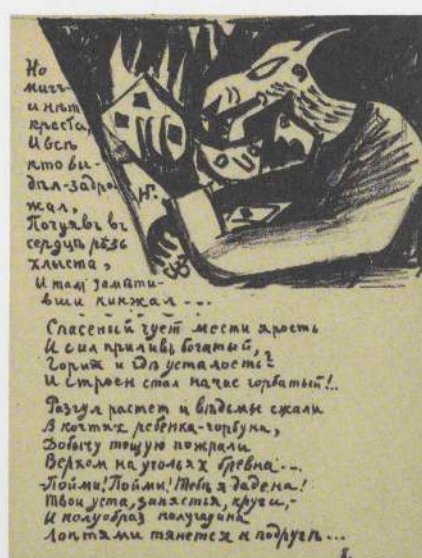 Но
мигъ
и нѣт
креста,
И всѣ
кто ви-
дѣл-задро
жал,
Почуявъ въ
сердцѣ рѣзь
хлыста,
И там замѣти-
вши кинжал...
Н.Г.
Спасеный чует мести ярость
И сил приливъ богатый,
Горит и гдѣ усталость?
И строен стал на час горбатый!..
Разгул растет и вѣдьмы сжали
В когтях ребенка-горбуна,
Добычу тощую пожрали
Верхом на угольях бревна...
-Пойми! Пойми! Тебѣ я дадена!
Твои уста, запястья, круги,-
И полуобраз полугадина
Локтями тянется к подругѣ...